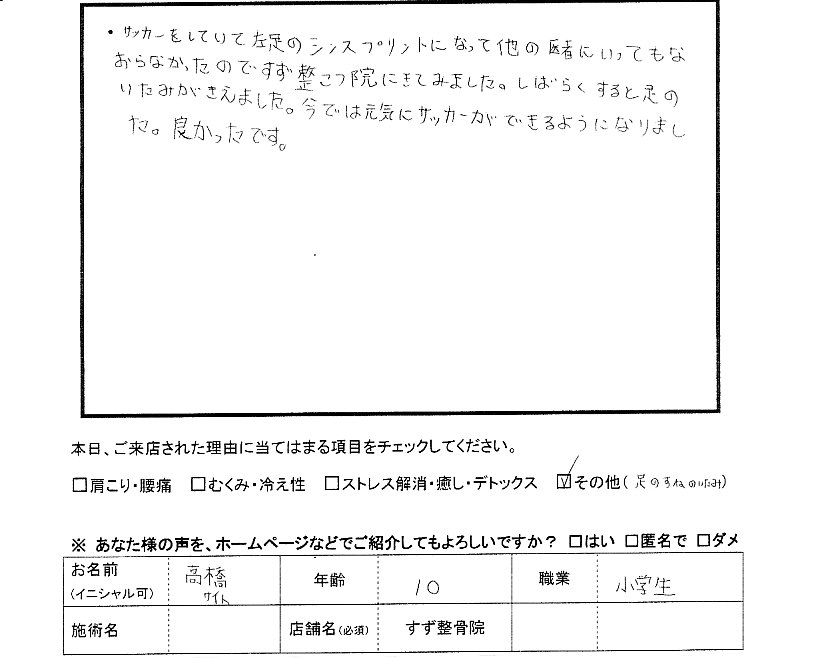 ・サッカーをしていて左足のシンスプリントになって他の医者にいってもな
おらなかったのですず整こつ院にきてみました。しばらくすると足の
いたみがきえました。今では元気にサッカーができるようになりまし
た。良かったです。
本日、ご来店された理由に当てはまる項目をチェックしてください。
□肩こり・腰痛 □むくみ・冷え性 □ストレス解消・癒し・デトックス ☑その他(足のすねのいたみ)
※ あなた様の声を、ホームページなどでご紹介してもよろしいですか？ □はい □匿名で □ダメ
お名前 (イニシャル可) 高橋 サイト 年齢 10 職業 小学生
施術名 店舗名(必須) すず整骨院